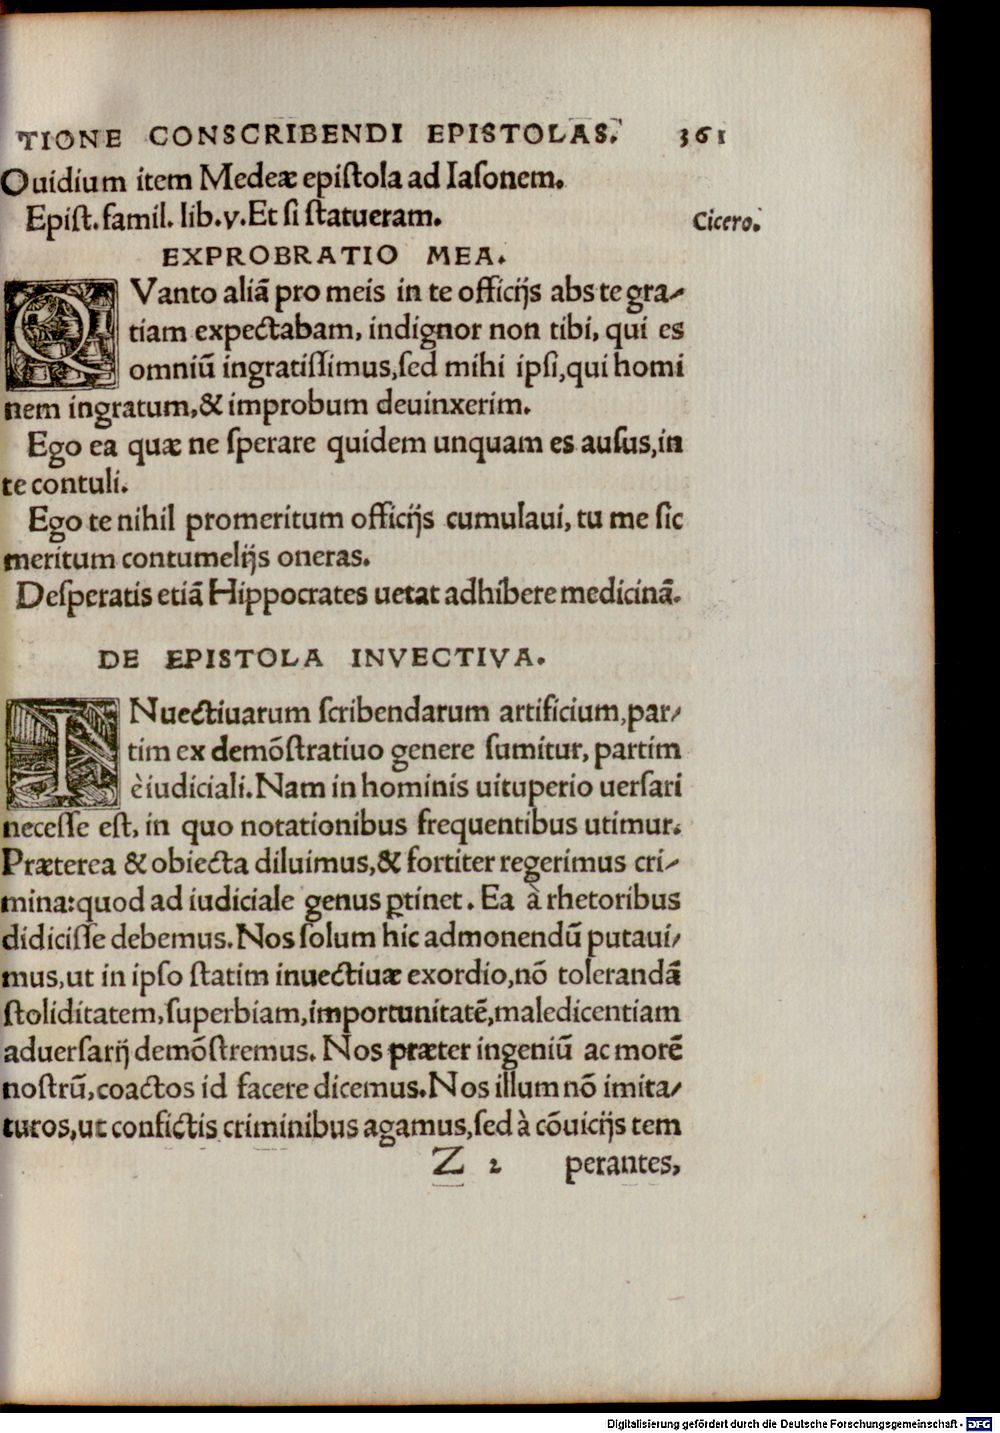 TIONE CONSCRIBENDI EPISTOLAS. 361
Ouidium item Medeæ epiſtola ad Iaſonem.
Epiſt. famil. lib. v. Et ſi ſtatueram.
Cicero.
EXPROBRATIO MEA.
QVanto aliā pro meis in te officijs abs te gra-
tiam expectabam, indignor non tibi, qui es
omniū ingratiſſimus, ſed mihi ipſi, qui homi
nem ingratum, & improbum deuinxerim.
Ego ea quæ ne ſperare quidem unquam es auſus, in
te contuli.
Ego te nihil promeritum officijs cumulaui, tu me ſic
meritum contumelijs oneras.
Deſperatis etiā Hippocrates uetat adhibere medicinā.
DE EPISTOLA INVECTIVA.
INuectiuarum ſcribendarum artificium, par-
tim ex demōſtratiuo genere ſumitur, partim
è iudiciali. Nam in hominis uituperio uerſari
neceſſe eſt, in quo notationibus frequentibus utimur.
Præterea & obiecta diluimus, & fortiter regerimus cri-
mina: quod ad iudiciale genus ꝑtinet. Ea à rhetoribus
didiciſſe debemus. Nos ſolum hic admonendū putaui-
mus, ut in ipſo ſtatim inuectiuæ exordio, nō tolerandā
ſtoliditatem, ſuperbiam, importunitatē, maledicentiam
aduerſarij demōſtremus. Nos præter ingeniū ac morē
noſtrū, coactos id facere dicemus. Nos illum nō imita-
turos, ut confictis criminibus agamus, ſed à cōuicijs tem
Z 2 perantes,
Digitalisierung gefördert durch die Deutsche Forschungsgemeinschaft - DFG